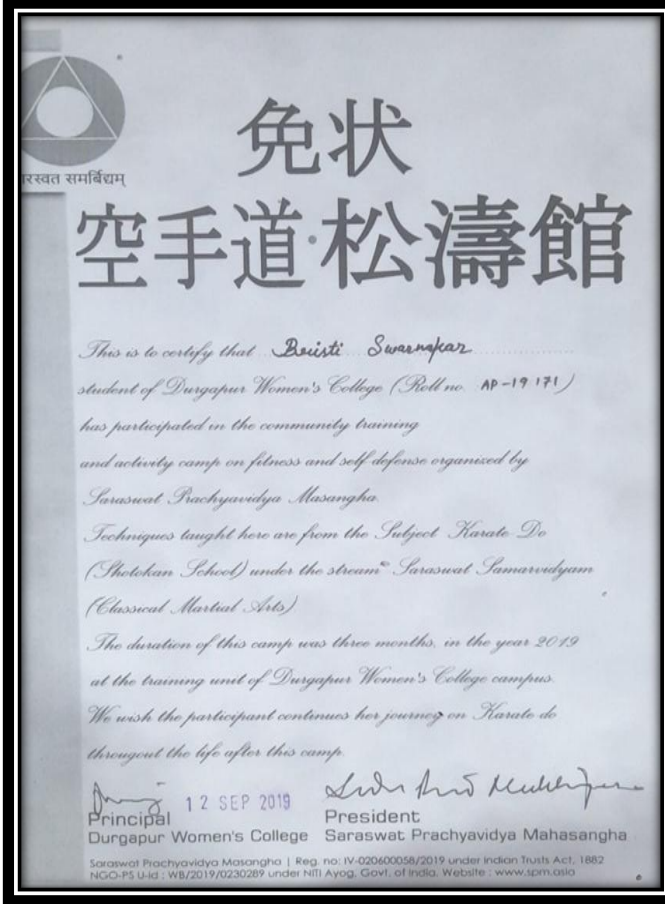 रस्वत समर्बिद्यम्
免状
空手道·松濤館
This is to certify that Beristi Swarnakar
student of Durgapur Women's College (Roll no. AP-19 171)
has participated in the community training
and activity camp on fitness and self defense organized by
Saraswat Prachyavidya Masangha.
Techniques taught here are from the Subject Karate Do
(Shotokan School) under the stream Saraswat Samarvidyam
(Classical Martial Arts)
The duration of this camp was three months, in the year 2019
at the training unit of Durgapur Women's College campus.
We wish the participant continues her journey on Karate do
througout the life after this camp.
12 SEP 2019
Principal President
Durgapur Women's College Saraswat Prachyavidya Mahasangha
Saraswat Prachyavidya Masangha | Reg. no: IV-020600058/2019 under Indian Trusts Act, 1882
NGO-PS U-id : WB/2019/0230289 under NITI Ayog, Govt. of India. Website : www.spm.asia